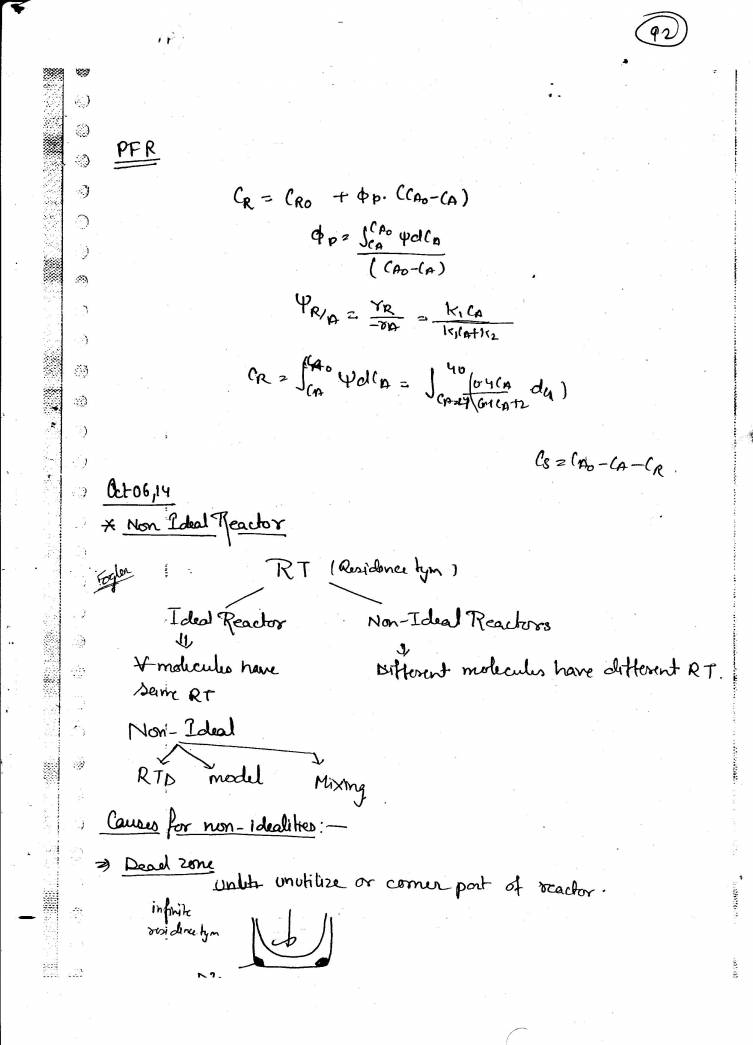 92
PFR
C_R = C_R0 + Φp. (C_A0 - C_A)
Φp = ∫_CA^CA0 ψ dC_A / (C_A0 - C_A)
Ψ_R/A = r_R / -r_A = k₁C_A / k₁C_A + k₂
C_R = ∫_CA^CA0 ψ dC_A = ∫ 40
C_S = C_A0 - C_A - C_R .
Oct 06, 14
* Non Ideal Reactor
Fogler
RT (Residence tym)
Ideal Reactor Non-Ideal Reactors
⇓ ⇓
∀ molecules have Different molecules have different RT.
same RT
Non-Ideal
RTD model Mixing
Causes for non-idealities:—
⇒ Dead zone
unutilize or corner part of reactor.
infinite
residence tym